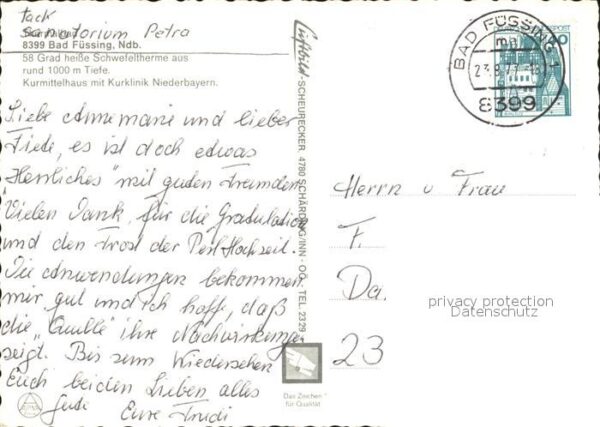 Sanatorium Petra
8399 Bad Füssing, Ndb.
58 Grad heiße Schwefeltherme aus
rund 1000 m Tiefe.
Kurmittelhaus mit Kurklinik Niederbayern.
Liebe Annemarie und lieber
Fiede, es ist doch etwas
Herrliches "mit guten Freunden"
Vielen Dank, für die Gratulation
und den Trost der Perl Hochzeit.
Die Anwendungen bekommen
mir gut und ich hoffe, daß
die "Quelle" ihre Nachwirkungen
zeigt. Bis zum Wiedersehen
Euch beiden Lieben alles
Gute Eure Trudi
Luftbild-SCHEURECKER, 4780 SCHÄRDING/INN - OÖ., TEL. 2329
Das Zeichen
für Qualität
BAD FÜSSING 1
8399
Herrn u Frau
F.
Da.
23
privacy protection
Datenschutz